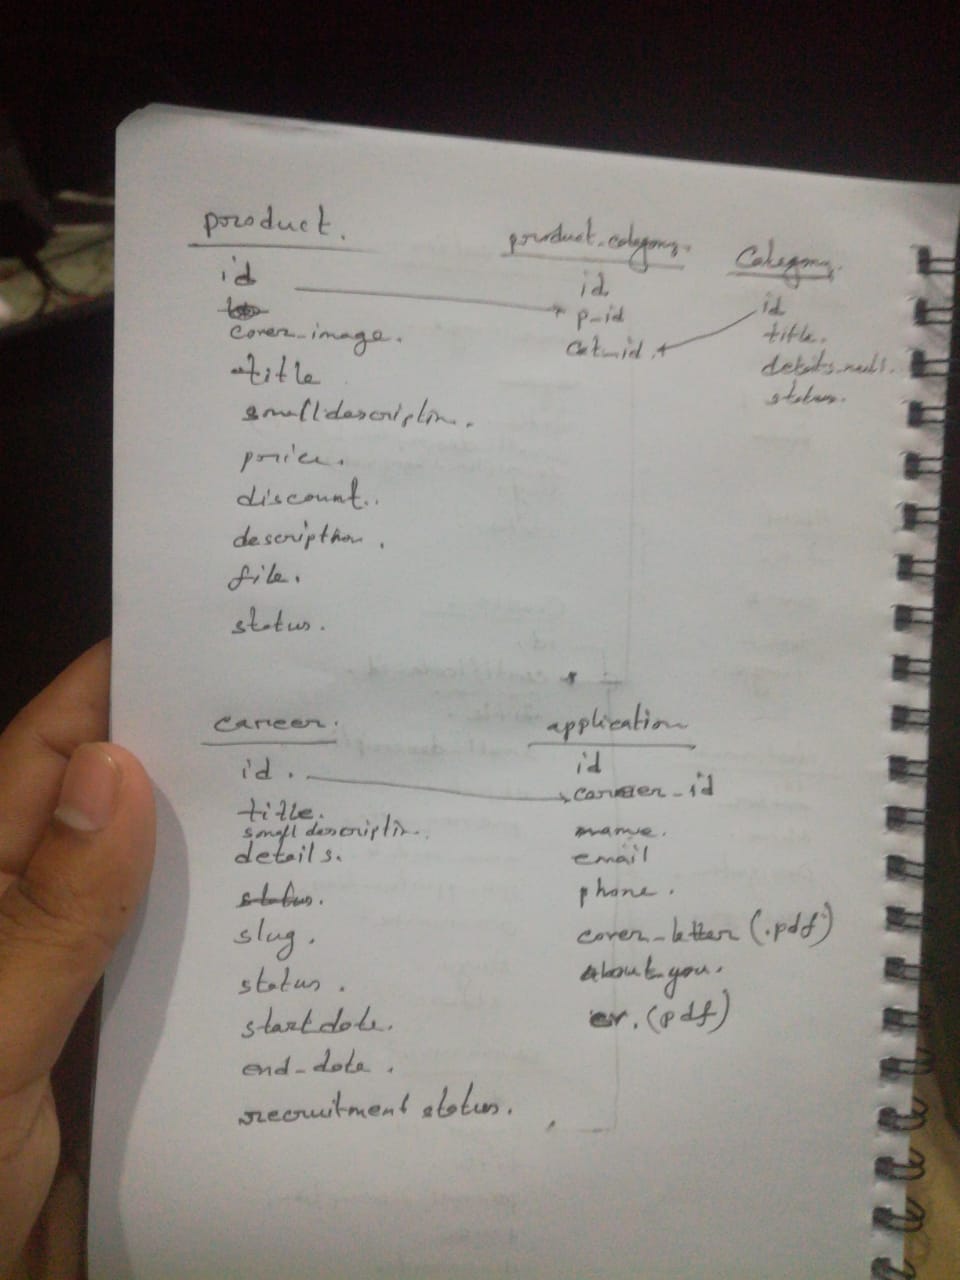 product.
id
cover_image.
title
small description.
price.
discount..
description.
file.
status.
product_category.
id
p_id
cat_id.
Category.
id
title.
details_null.
status.
career.
id.
title.
small description.
details.
status.
slug.
status.
start date.
end_date.
recruitment status.
application
id
career_id
name.
email
phone.
cover_letter (.pdf)
About you.
cv. (pdf)